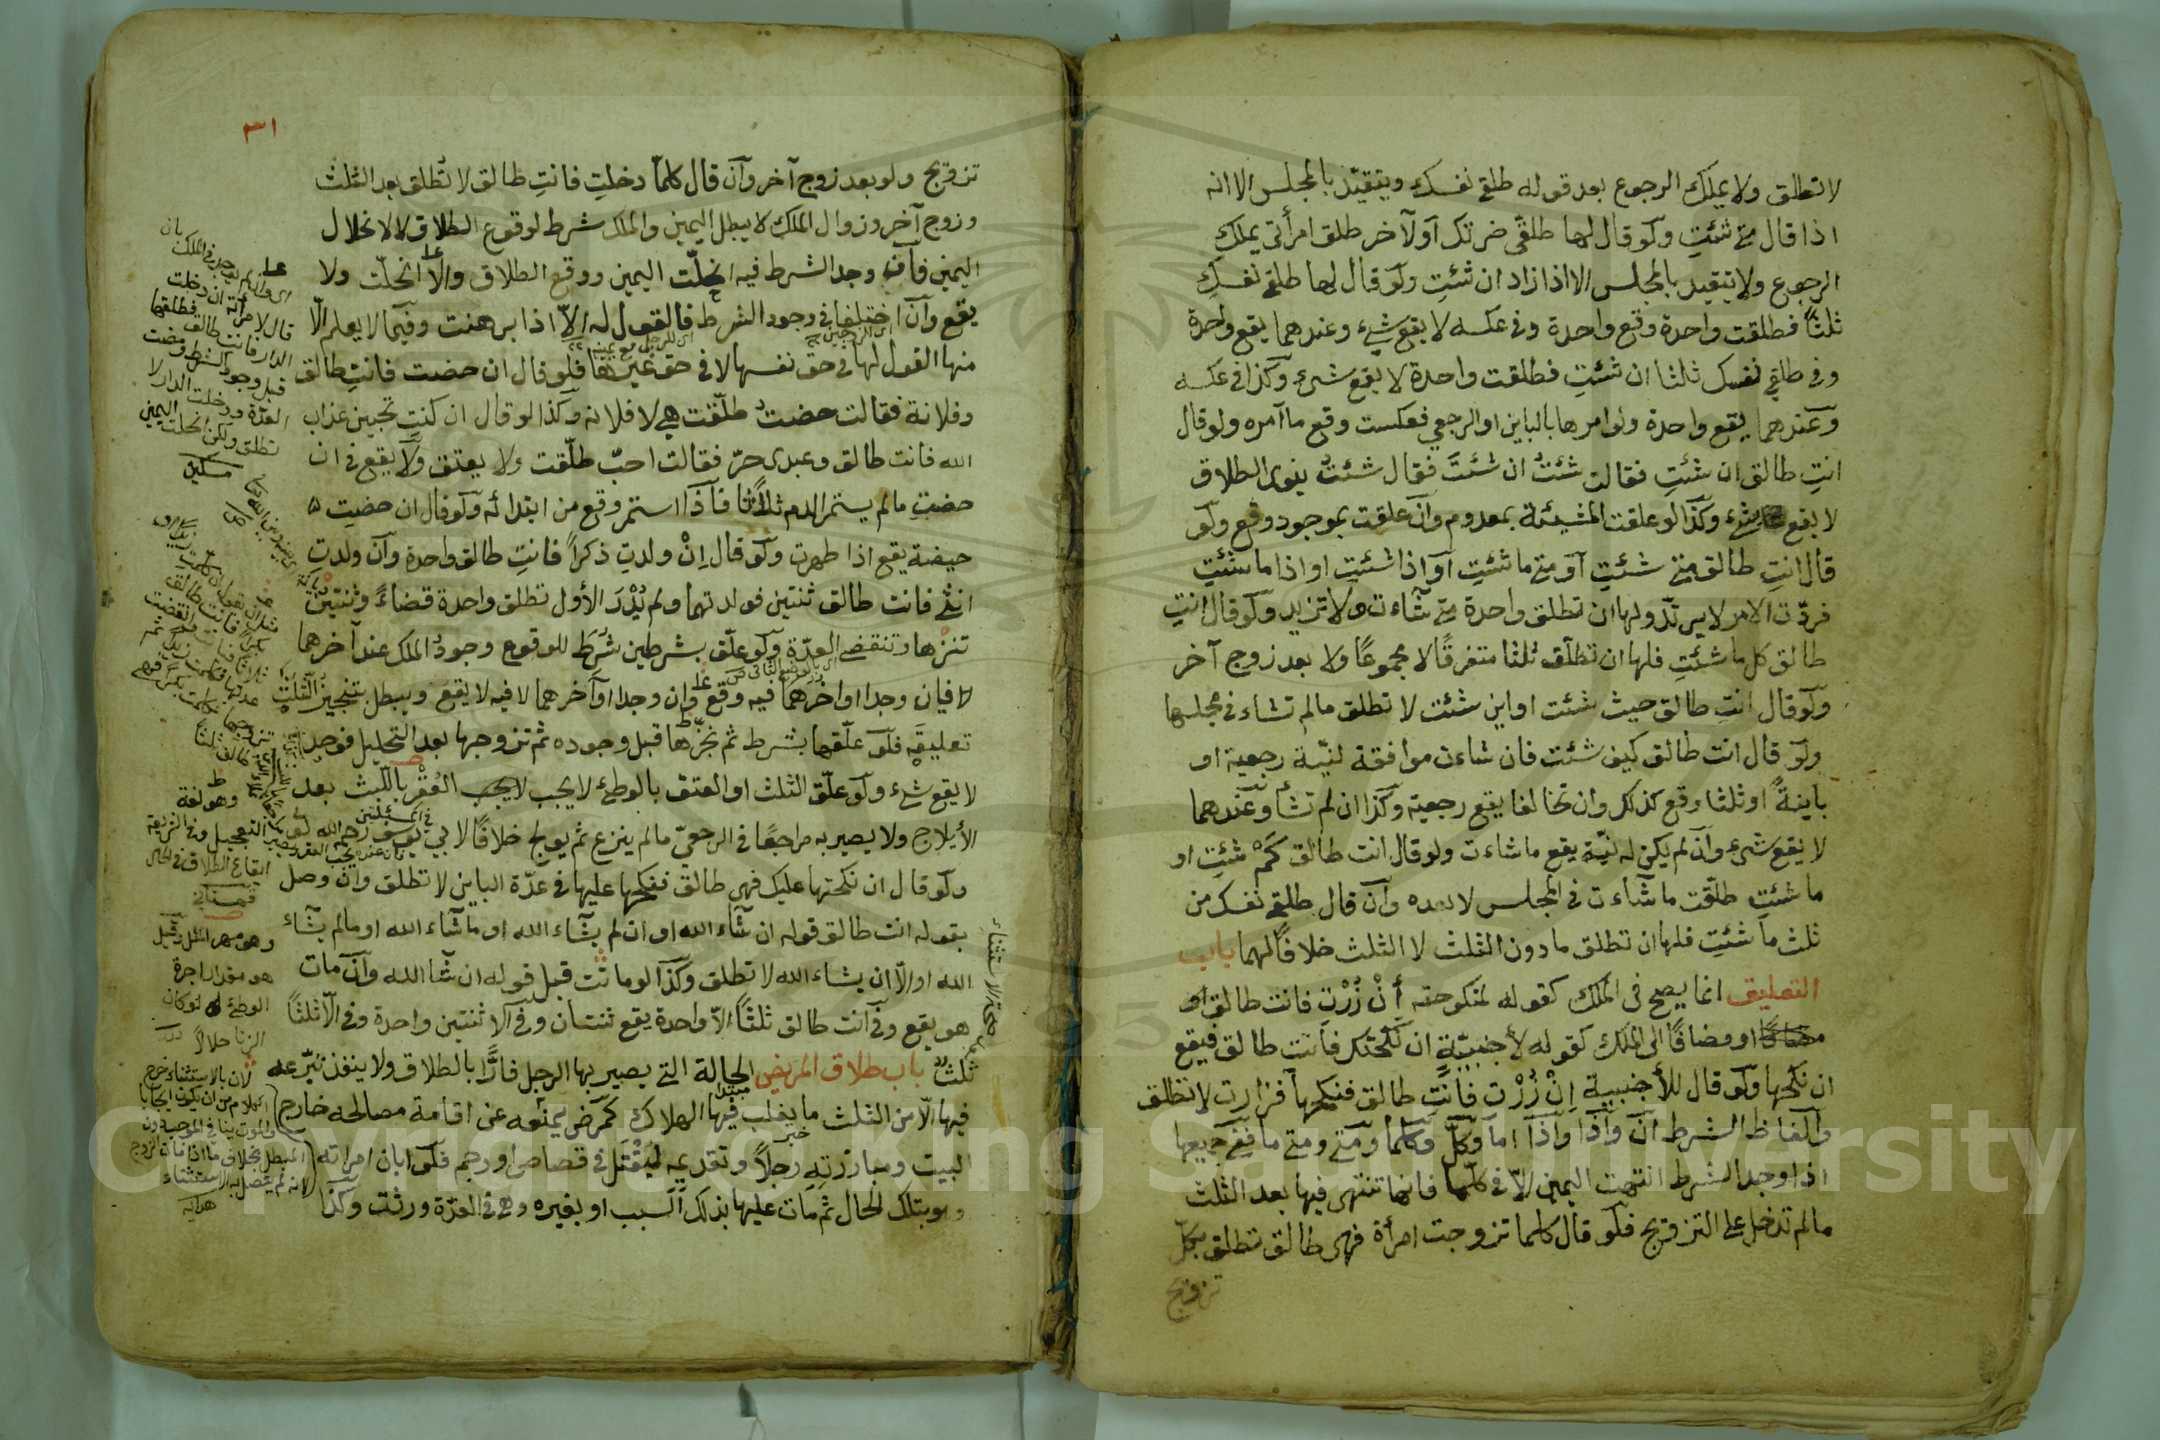 لا تطلق ولا يملك الرجوع بعد قوله طلقي نفسك ويتقيد بالمجلس الا انه
اذا قال متى شئتِ ولو قال لها طلقي ضرتك او لآخر طلق امرأتي يملك
الرجوع ولا يتقيد بالمجلس الا اذا زاد ان شئتِ ولو قال لها طلقي نفسكِ
ثلثاً فطلقت واحدة وقع واحدة وفي عكسه لا يقع شيء وعندهما يقع واحدة
وفي طلقي نفسك ثلثا ان شئتِ فطلقت واحدة لا يقع شيء وكذا في عكسه
وعندهما يقع واحدة ولو امرها بالباين او الرجعي فعكست وقع ما آمره ولو قال
انتِ طالق ان شئتِ فقالت شئتُ ان شئتَ فقال شئتُ ينوي الطلاق
لا يقع شيء وكذا لو علقت المشيئة بمعدوم وان علقت بموجود وقع ولو
قال انتِ طالق متى شئتِ او متى ما شئتِ او اذا شئتِ او اذا ما شئتِ
فردّت الامر لا يرتد ولها ان تطلق واحدة متى شاءت ولا تزيد ولو قال انتِ
طالق كل ما شئتِ فلها ان تطلّق ثلثا متفرقًا لا مجموعًا ولا بعد زوج آخر
ولو قال انتِ طالق حيث شئت او اين شئت لا تطلق مالم تشاء في مجلسها
ولو قال انت طالق كيف شئت فان شاءت موافقة لنيّته رجعية او
باينةً او ثلثا وقع كذلك وان تخالفا يقع رجعية وكذا ان لم تشأ وعندهما
لا يقع شيء وان لم يكن له نيّة يقع ما شاءت ولو قال انت طالق كَمْ شئتِ او
ما شئتِ طلّقت ما شاءت في المجلس لا بعده وان قال طلقي نفسك من
ثلث ما شئتِ فلها ان تطلق مادون الثلث لا الثلث خلافًا لهما باب
التعليق انما يصح في الملك كقوله لمنكوحته أنْ زُرْتِ فانت طالق او
او مضافًا الى الملك كقوله لأجنبيّة ان نكحتك فانت طالق فيقع
ان نكحها ولو قال للأجنبية اِنْ زُرْتِ فانتِ طالق فنكحها فزارت لا تطلق
والفاظ الشرط ان واذا واذا ما وكلّ وكلما ومتى ومتى ما ففي جميعها
اذا وجد الشرط انتهت اليمين الاّ في كلّما فانها تنتهى فيها بعد الثلث
مالم تدخل على التزويج فلو قال كلما تزوجت امرأة فهي طالق تطلق بكلّ
تزويج
٣١
تزويج ولو بعد زوج آخر وان قال كلما دخلتِ فانتِ طالق لا تطلق بعد الثلث
وزوج آخر وزوال الملك لا يبطل اليمين والملك شرط لوقوع الطلاق لا لانحلال
اليمين فان وجد الشرط فيه انحلّت اليمين ووقع الطلاق والاّ انحلّت ولا
يقع وان اختلفا في وجود الشرط فالقول له الاّ اذا برهنت وفيما لا يعلم الّا
منها القول لها في حق نفسها لا في حق غيرها فلو قال ان حضت فانتِ طالق
وفلانة فقالت حضتُ طلّقت هي لا فلانه وكذا لو قال ان كنتِ تحبين عذاب
الله فانت طالق وعبدى حرّ فقالت احبّ طلّقت ولا يعتق ولا يقع في ان
حضتِ مالم يستمر الدم ثلاثا فاذا استمر وقع من ابتدائه ولو قال ان حضتِ
حيضة يقع اذا طهرت ولو قال اِنْ ولدتِ ذكراً فانتِ طالق واحدة وان ولدتِ
انثى فانت طالق ثنتين فولدتهما ولم يُدْرَ الأول تطلق واحدة قضاءً وثنتين
تنزها وتنقضي العدّة ولو علّق بشرطين شُرِطَ للوقوع وجودُ الملك عند آخرهما
فان وجدا او آخرهما فيه وقع وان وجدا او آخرهما لا فيه لا يقع ويبطل تنجيزُ الثلثِ
تعليقَه فلو علّقها بشرط ثم نجّزها قبل وجوده ثم تزوجها بعد التحليل فوجد
لا يقع شيء ولو علّق الثلث او العتق بالوطئ لا يجب العُقْر باللّبث بعد
الأيلاج ولا يصير به مراجعًا في الرجعيّ مالم ينزع ثم يولج خلافًا لابي يوسف رحمه الله
ولو قال ان نكحتها عليك فهي طالق فنكحها عليها في عدّة الباين لا تطلق وان وصل
بقوله انت طالق قوله ان شاء الله او ان لم يشاء الله او ما شاء الله او مالم يشاء
الله او الاّ ان يشاء الله لا تطلق وكذا لو ماتت قبل قوله ان شا الله وان مات
هو يقع وفي انت طالق ثلثًا الاّ واحدة يقع ثنتان وفي الا ثنتين واحدة وفي الاّ ثلثاً
ثلثٌ باب طلاق المريض الحالة التي يصير بها الرجل فارًّا بالطلاق ولا ينفذ تبرّعه
فيها الاّ من الثلث ما يغلب فيها الهلاك كمرض يمنعه عن اقامة مصالحه خارج
البيت ومبارزتِهِ رجلاً وتقديمه ليُقْتَل في قصاص او رجم فلو ابان امراته
وهو بتلك الحال ثم مات عليها بذلك السبب او بغيره وهي في العدّة ورثت وكذا
قال لامرأته ان دخلت
الدار فانت طالق فطلقها
قبل وجود الشرط ومضت
العدّة ودخلت الدار لا
تطلق ولكن انحلت اليمين
مسكين
وهو لغة
التعجيل وفي الشريعة
ايقاع الطلاق في الحال
قهستاني
وهو مهر المثل وقيل
هو مقدار اجرة
الوطئ لو كان
الزنا حلالاً
لان بالاستثناء خرج
الكلام من ان يكون ايجابا
والموت ينافي الموجب دون
المبطل بخلاف ما اذا مات الزوج
لانه لم يتصل به الاستثناء
هدايه